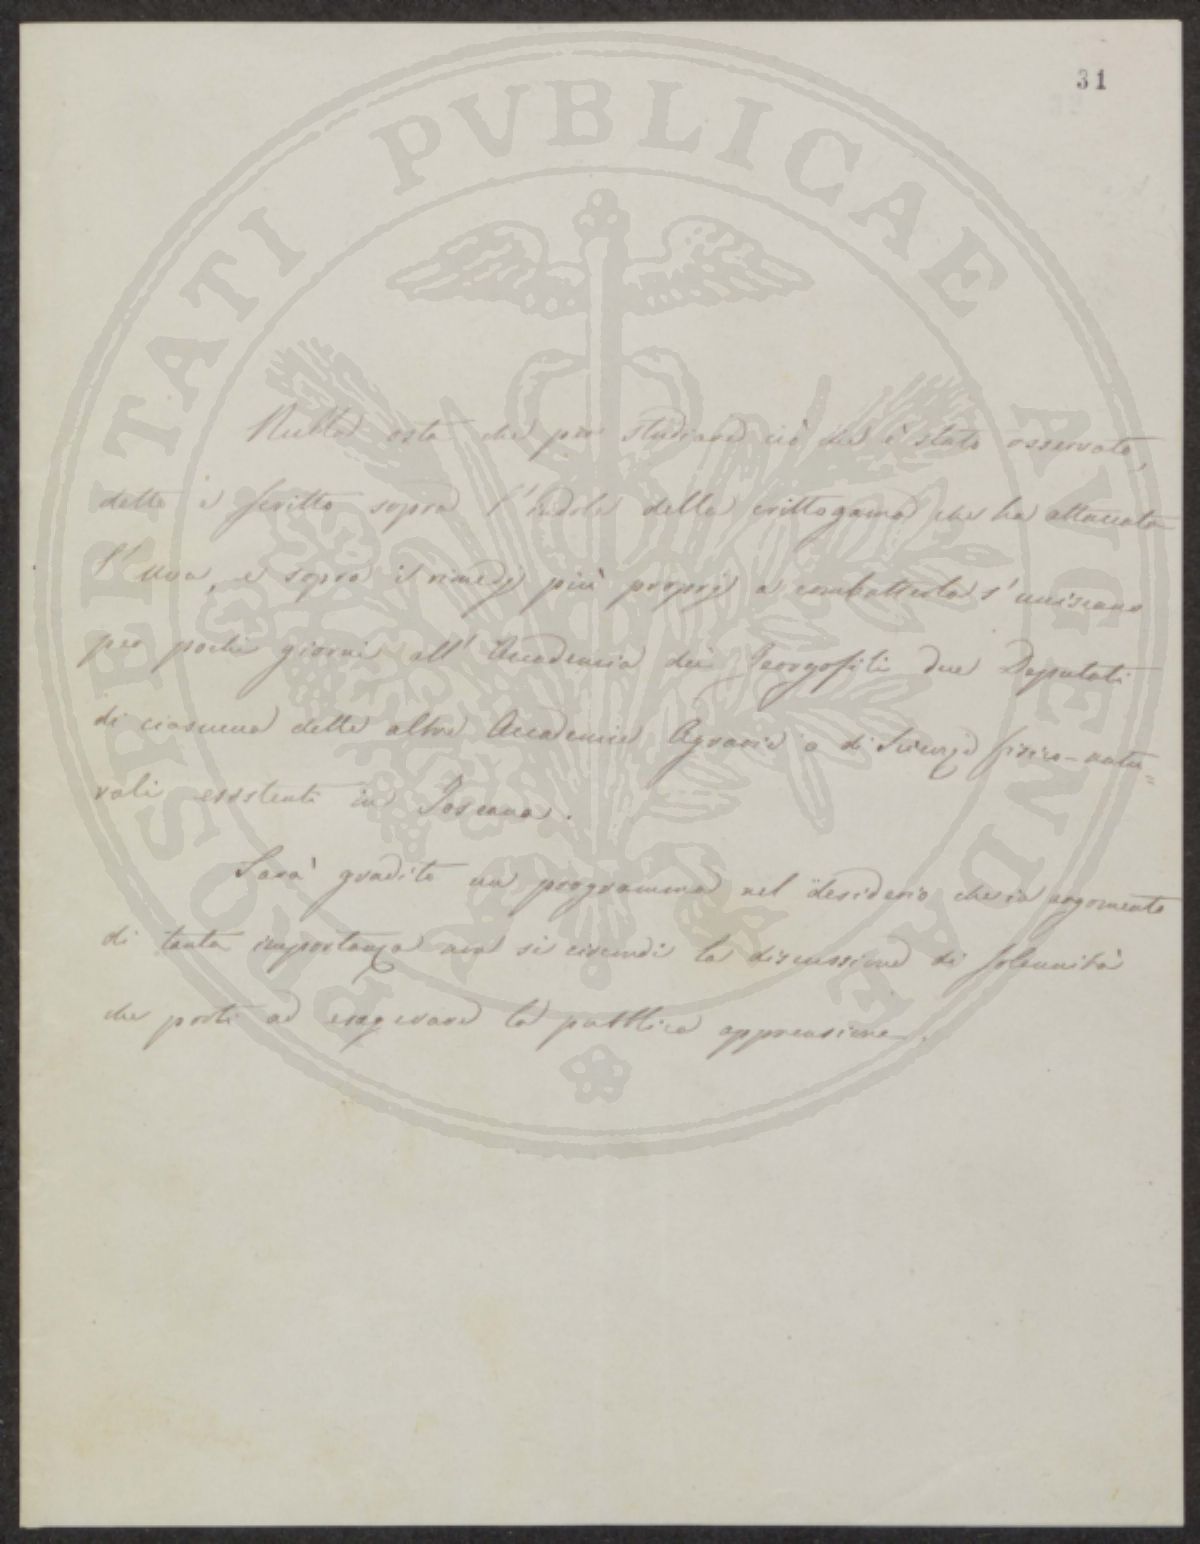 31
PROSPERITATI PVBLICAE AVGENDAE
Nulla osta che per studiare ciò che è stato osservato,
detto e scritto sopra l'indole della crittogama che ha attaccata
l'uva, e sopra i rimedj più proprj a combatterla s'uniscano
per pochi giorni all'Accademia dei Georgofili due Deputati
di ciascuna delle altre Accademie Agrarie o di Scienze fisico-natu=
rali esistenti in Toscana.
Sarà gradito un programma nel desiderio che in argomento
di tanta importanza non si circondi la discussione di solennità
che porti ad esagerare la pubblica apprensione.